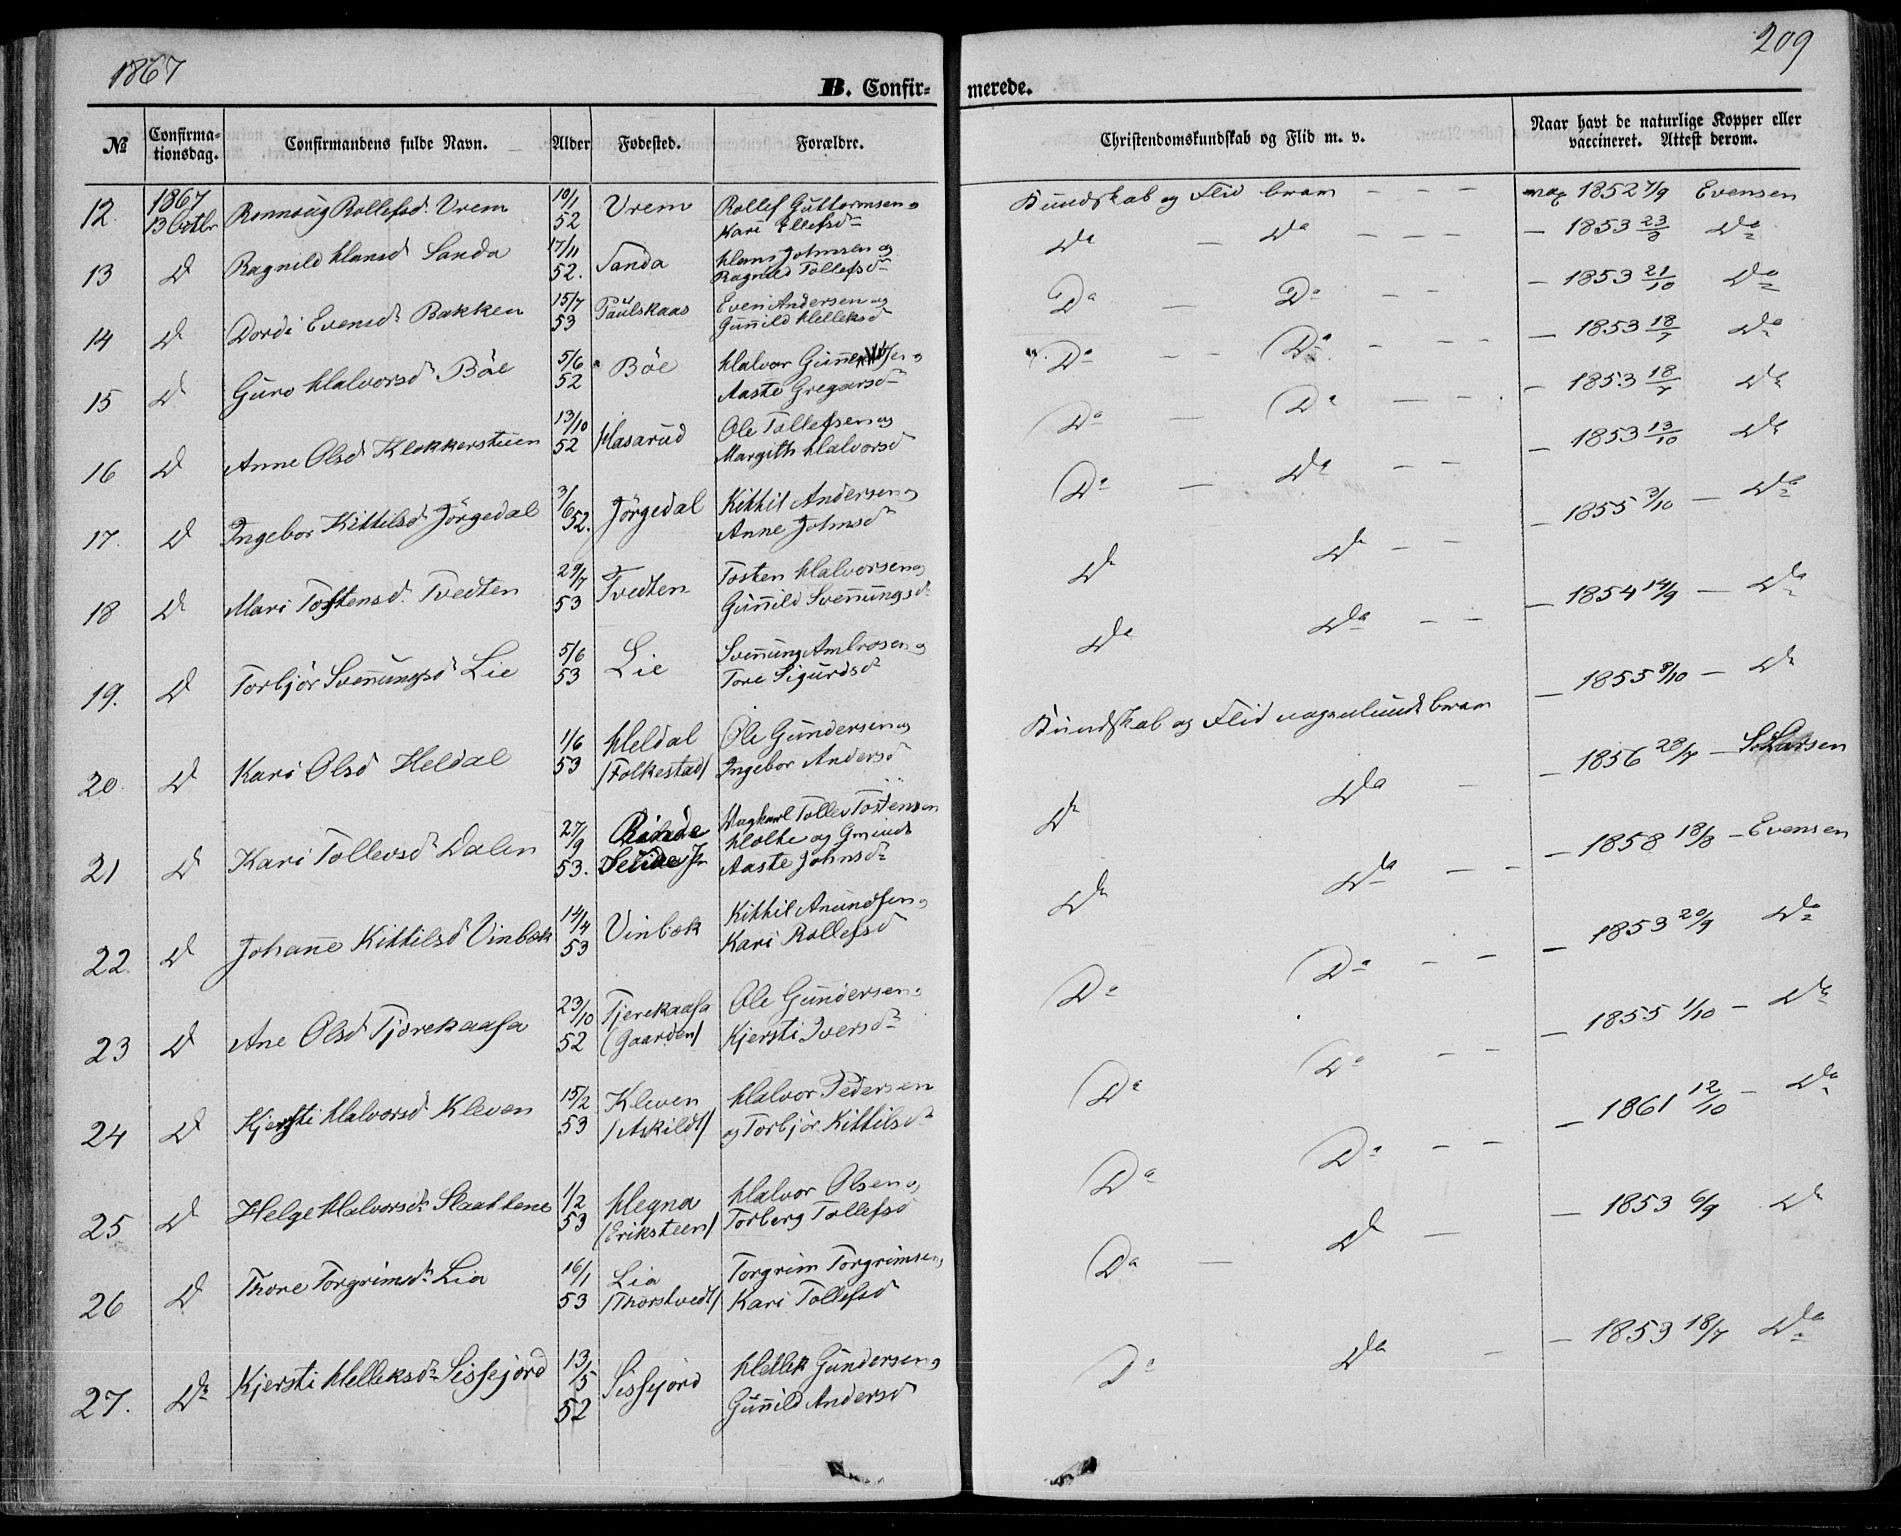 1867
209
B. Confir- merede.
№ Confirma-tionsdag. Confirmandens fulde Navn. Alder Fødested. Forældre. Christendomskundskab og Flid m. v. Naar havt de naturlige Kopper eller vaccineret. Attest derom.
12. 1867 13 Octbr Ronnoug Rollefsd. Vrem 10/1 52 Vrem Rollef Guttormsen og Kari Ellefsd. Kundskab og Flid bram - - - 1852 7/9 Evensen
13 Do Ragnild Hansd Sanda 17/11 52. Sanda Hans Johnsen og Ragnild Tollefsd Da - Da - - - — 1853 23/8 Da
14 Do Dordi Evensd. Bakken 15/7 53 Paulskaas Even Andersen og Gunnild Helleksd Da - Da - - — 1853 21/10 Da
15 Do Guro Halvorsd Böe 5/6 52 Böe Halvor og Aaste Gregarsd Da - - Da - - - — 1853 18/7 Da
16 Do Anne Olsd Klokkersteien 13/10 52 Hasarud Ole Tollefsen og Margith Halvorsd Da - Da - - — 1853 18/7 Da
17. Do Ingebor Kittilsd Jörgedal 3/6 52. Jörgedal Kittil Andersen og Anne Johnsd Da - Da - - — 1853 13/10 Da
18 Do Mari Tostensd. Tvedten 29/7 53 Tvedten Tosten Halvorsen og Gunnild Svennungsd Da Da - - — 1855 3/10 — Da
19. Do Torbjör Svennungsd Lie 5/6 53 Lie Svennung Ambrosen og Tore Sigurdsd Da Da - - — 1854 14/9 — Da
20. Do Kari Olsd Heldal 1/6 53 Heldal /Folkestad/ Ole Gundersen og Ingebor Andersd Kundskab og Flid nogenlunde bram — 1855 8/10 — Da
21 Do Kari Tollevsd Dalen 27/9 53. Tollev Tostensen Holte og Gmindt Aaste Johnsd Da Da - — 1856 28/7 — S. Larsen
22. Do Johanne Kittilsd Vinbæk 14/4 53 Vinbæk Kittil Anundsen og Kari Rollefsd Da Da - - — 1858 18/8 — Evensen
23 Do Ane Olsd Tjørekaasa 23/10 52 Tjerekaasa (Gaarden/ Ole Gundersen og Kjersti Iversd Da Da - - — 1853 20/9 Da
24 Do Kjersti Halvorsd Kleven 15/2 53 Kleven /Askildt/ Halvor Pedersen og Torbjör Kittilsd Da Da - - — 1855 1/10 — Da
25 Do Helge Halvorsd Slaattene 1/2 53 Hegna (Eriksteen/ Halvor Olsen og Torberg Tollefsd Da Da - - — 1861 12/10 — Da
26 Do Thore Torgrimsd. Lia 16/1 53 Lia /Thorstvedt/ Torgrim Torgrimsen Kari Tollefsd Da - Do - — 1853 6/9 Do
27. Do Kjersti Helleksd Sissejord 13/5 52 Sissejord Hellek Gundersen og Gunnild Andersd Da Da - — 1853 18/7 Da